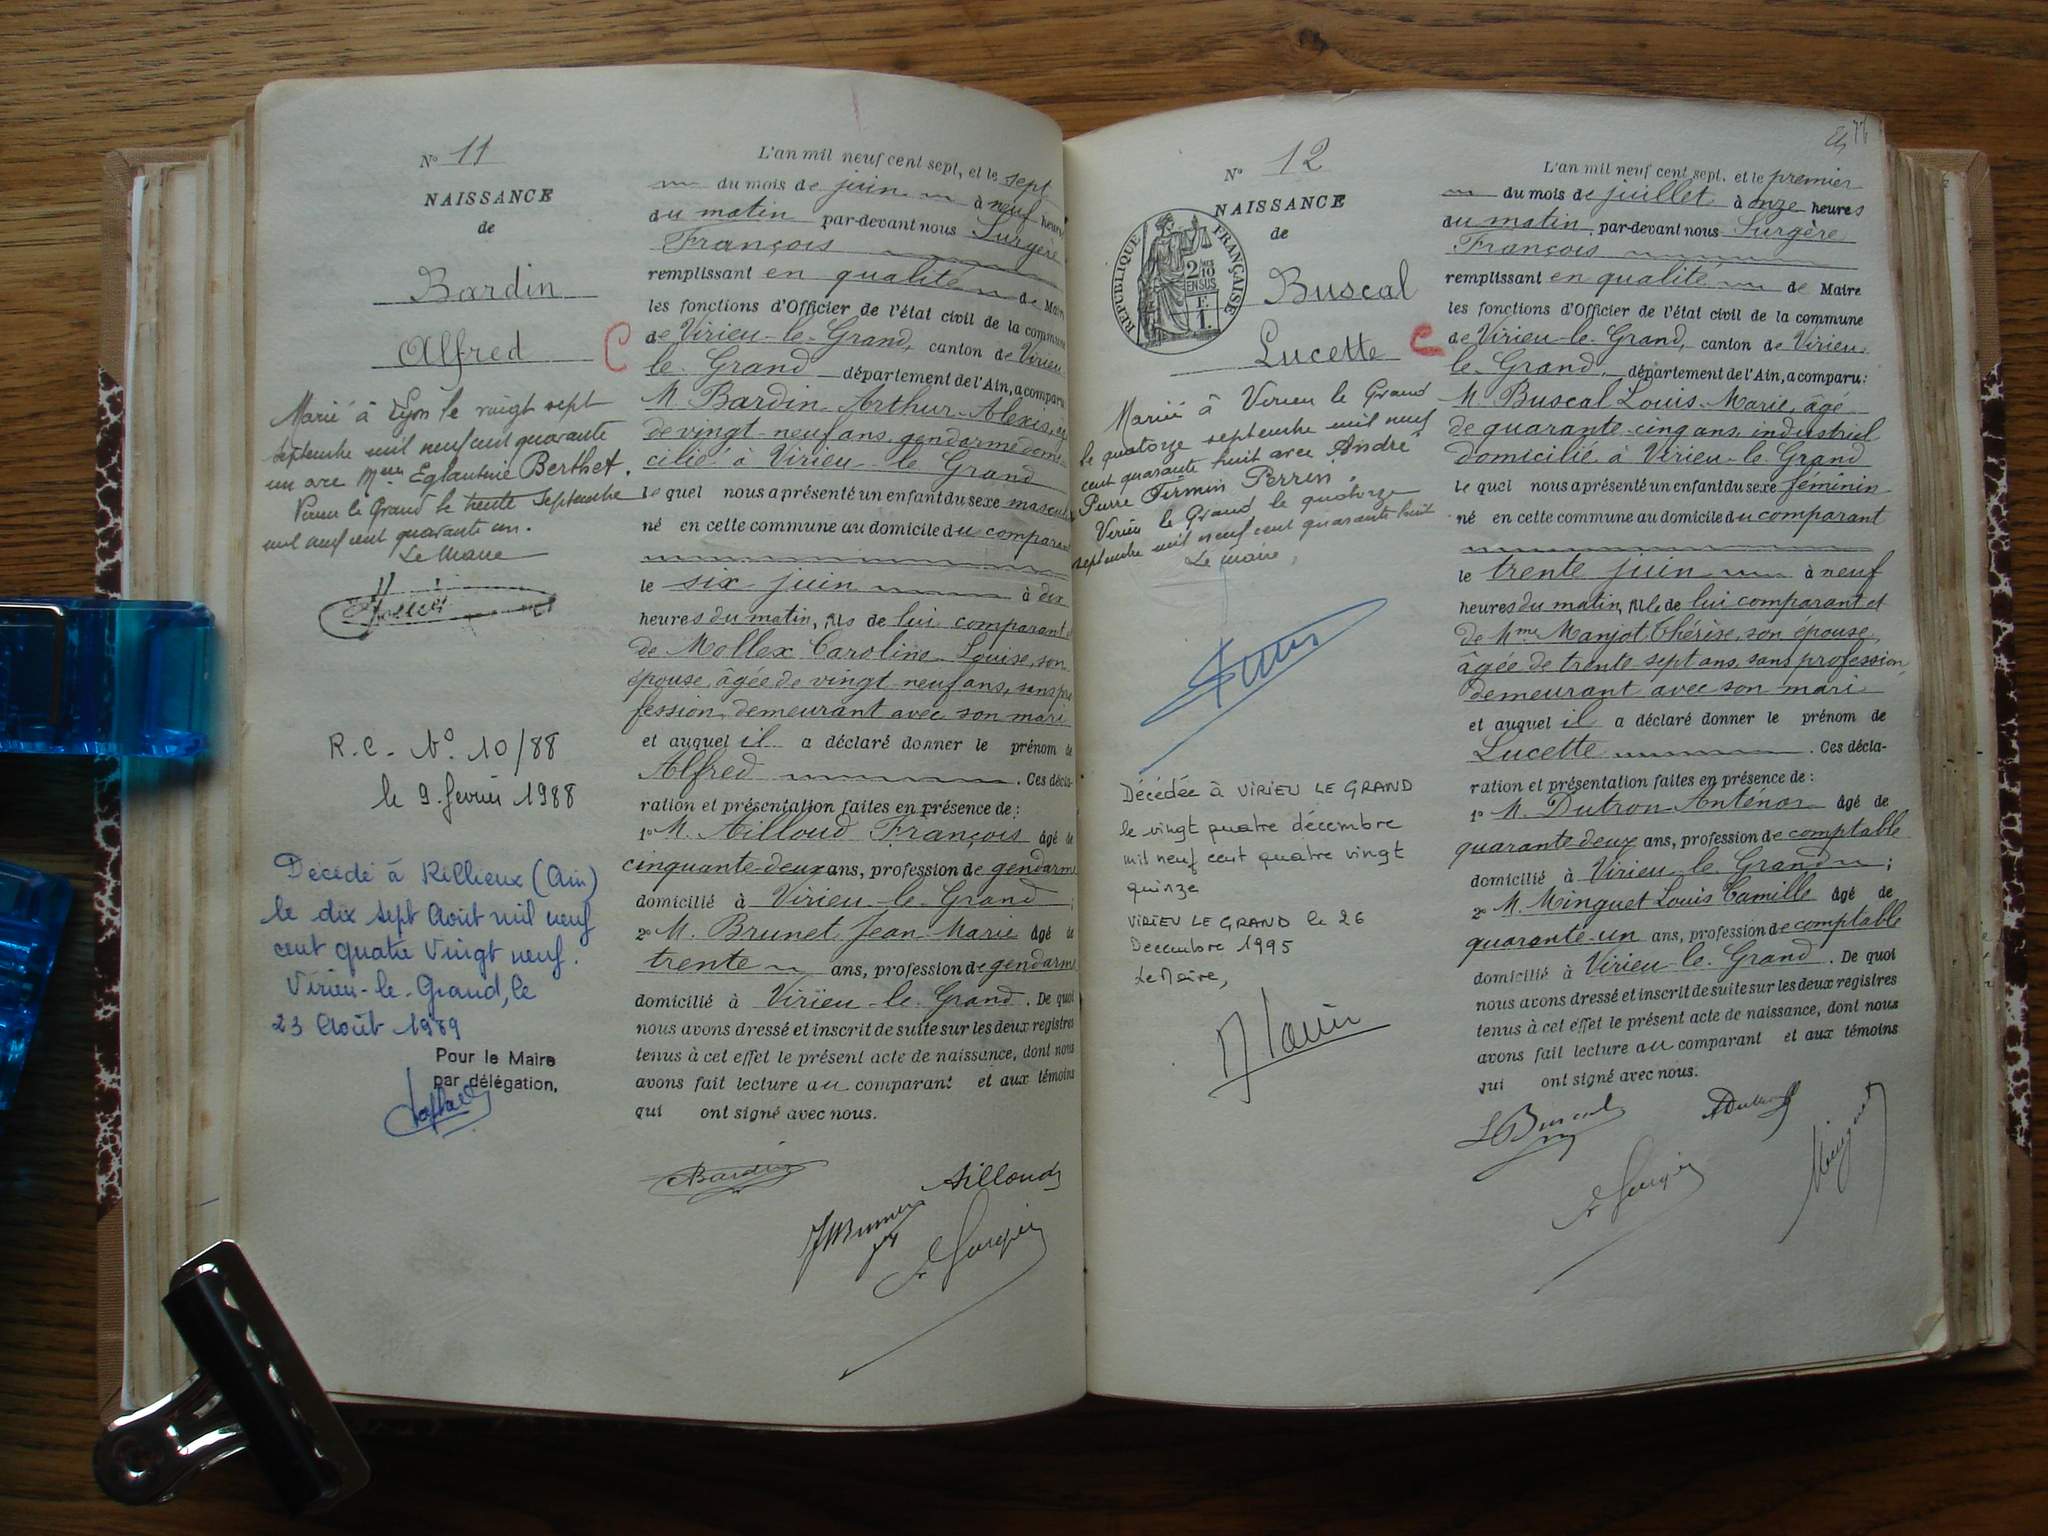 N° 11
NAISSANCE
de
Bardin
Alfred
C
Marié à Lyon le vingt sept
septembre mil neuf cent quarante
un avec Églantine Berthet.
Virieu le Grand le trente Septembre
mil neuf cent quarante un.
Le Maire
R.C. N° 10/88
le 9 février 1988
Décédé à Rillieux (Ain)
le dix sept Août mil neuf
cent quatre Vingt neuf.
Virieu-le-Grand, le
23 Août 1989
Pour le Maire
par délégation,
L'an mil neuf cent sept, et le sept
du mois de juin à neuf heures
du matin par-devant nous Surgère
François
remplissant en qualité de Maire
les fonctions d'Officier de l'état civil de la commune
de Virieu-le-Grand, canton de Virieu
le-Grand département de l'Ain, a comparu
M. Bardin Arthur-Alexis,
de vingt-neuf ans, gendarme domi-
cilié à Virieu-le-Grand
lequel nous a présenté un enfant du sexe masculin
né en cette commune au domicile du comparant
le six juin à dix
heures du matin, fils de lui comparant et
de Mollex Caroline Louise, son
épouse, âgée de vingt-neuf ans, sans pro
fession, demeurant avec son mari
et auquel il a déclaré donner le prénom de
Alfred . Ces décla-
ration et présentation faites en présence de :
1° M. Ailloud François âgé de
cinquante-deux ans, profession de gendarme
domicilié à Virieu-le-Grand ;
2° M. Brunet Jean-Marie âgé de
trente ans, profession de gendarme
domicilié à Virieu-le-Grand. De quoi
nous avons dressé et inscrit de suite sur les deux registres
tenus à cet effet le présent acte de naissance, dont nous
avons fait lecture au comparant et aux témoins
qui ont signé avec nous.
Bardin
Ailloud
JMBrunet
Surgère
76
N° 12
NAISSANCE
de
RÉPUBLIQUE FRANÇAISE
2/10
EN SUS
F.
1.
Buscal
Lucette
C
Mariée à Virieu le Grand
le quatorze septembre mil neuf
cent quarante huit avec André
Pierre Firmin Perrin.
Virieu le Grand le quatorze
septembre mil neuf cent quarante huit.
Le maire,
Décédée à VIRIEU LE GRAND
le vingt quatre décembre
mil neuf cent quatre vingt
quinze
VIRIEU LE GRAND le 26
Décembre 1995
Le Maire,
L'an mil neuf cent sept, et le premier
du mois de juillet à onze heures
du matin, par-devant nous Surgère
François
remplissant en qualité de Maire
les fonctions d'Officier de l'état civil de la commune
de Virieu-le-Grand, canton de Virieu
le-Grand, département de l'Ain, a comparu :
M. Buscal Louis-Marie, âgé
de quarante-cinq ans, industriel
domicilié à Virieu-le-Grand
lequel nous a présenté un enfant du sexe féminin
né en cette commune au domicile du comparant
le trente juin à neuf
heures du matin, fille de lui comparant et
de Mme Manjot Thérèse, son épouse,
âgée de trente sept ans, sans profession,
demeurant avec son mari
et auquel il a déclaré donner le prénom de
Lucette . Ces décla-
ration et présentation faites en présence de :
1° M. Dutron Anténor âgé de
quarante-deux ans, profession de comptable
domicilié à Virieu-le-Grand ;
2° M. Minguet Louis Camille âgé de
quarante-un ans, profession de comptable
domicilié à Virieu-le-Grand. De quoi
nous avons dressé et inscrit de suite sur les deux registres
tenus à cet effet le présent acte de naissance, dont nous
avons fait lecture au comparant et aux témoins
qui ont signé avec nous.
LBuscal
ADutron
Surgère
Minguet